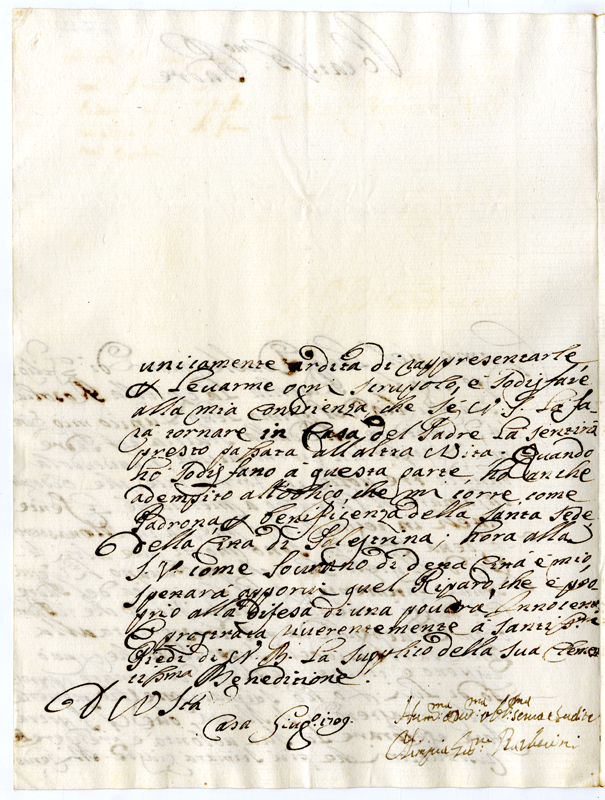 unicamente ardita di rappresentarle,
e levarme ogni scrupolo, e sodisfare
alla mia conscienza che sé N. S. la fa-
rà tornare in Casa del Padre la sentirà
presto passata all'altra Vita. Quando
ho sodisfatto à questa parte, ho anche
adempito all'obligo, che mi corre come
Padrona beneficenza della Santa Sede
della Città di Palestrina; hora alla
S. V. come Sovrano di detta Città è mio
sperarà apporvi quel Riparo, che è pro-
prio alla difesa di una povera Innocente
E prostrata riverentemente a Santissmi
Piedi di V. B. la supplico della sua Clemen
tissma Beneditione.
D V Stà
Casa Giugo. 1709.
Humma Devma obma serva e suddita
Olimpia Barberini